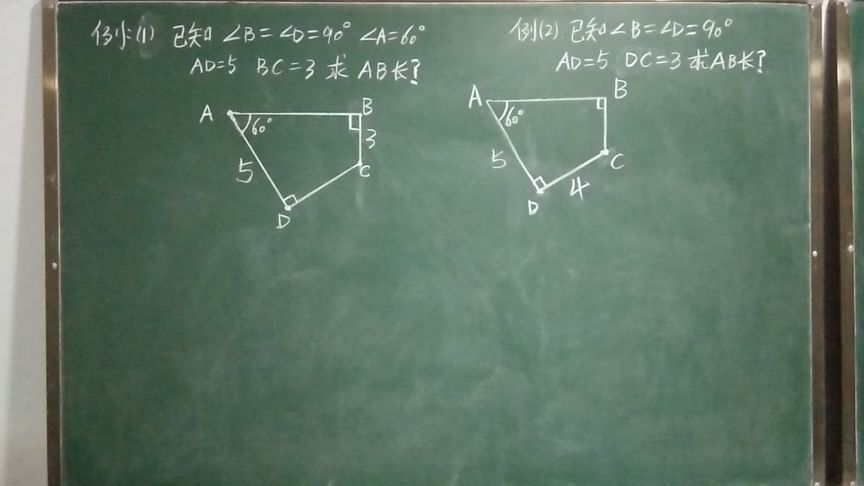 例:(1) 已知 ∠B=∠D=90° ∠A=60°
AD=5 BC=3 求 AB长?
A
B
60°
3
5
C
D
例(2). 已知∠B=∠D=90°
AD=5 DC=3 求AB长?
A
B
60°
5
C
4
D